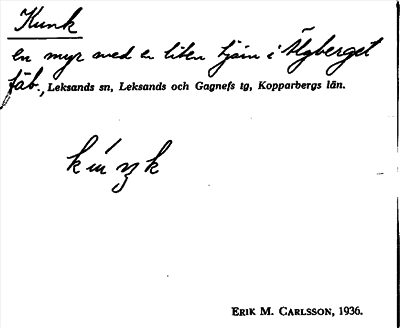 Kunk
en myr med en liten tjärn i Älgberget
fäb., Leksands sn, Leksands och Gagnefs tg, Kopparbergs län.
ERIK M. CARLSSON, 1936.